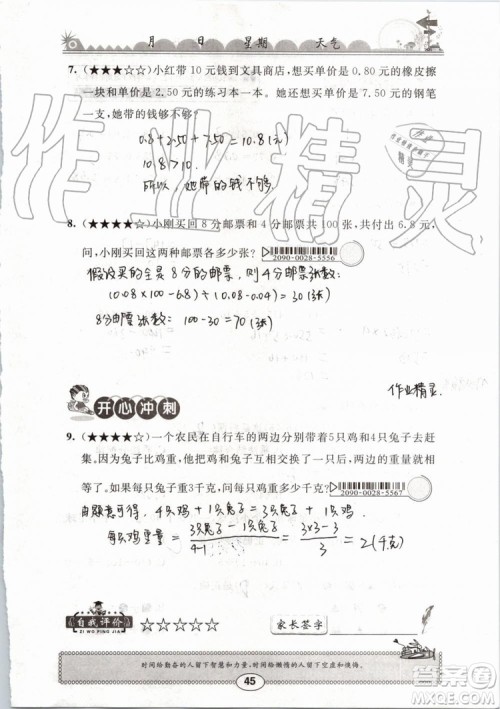 月 日 星期 天气
7. (★★★☆☆)小红带 10 元钱到文具商店，想买单价是 0.80 元的橡皮擦
一块和单价是 2.50 元的练习本一本。她还想买单价是 7.50 元的钢笔
一支，她带的钱够不够？
0.8 + 2.50 + 7.50 = 10.8(元)
10.8 > 10
所以，她带的钱不够。
8. (★★★★☆)小刚买回 8 分邮票和 4 分邮票共 100 张，共付出 6.8 元，
问，小刚买回这两种邮票各多少张？
2090-0028-5556
假设买的全是8分的邮票，则4分邮票张数：
(0.08×100-6.8)÷(0.08-0.04)=30(张)
8分邮票张数: 100-30=70(张)
作业精灵
开心冲刺
9. (★★★★☆)一个农民在自行车的两边分别带着5只鸡和4只兔子去赶
集。因为兔子比鸡重，他把鸡和兔子互相交换了一只后，两边的重量
就一样了。如果每只兔子重3千克，问每只鸡重多少千克？
2090-0028-5567
由题意可得，4只鸡+1只兔子=3只兔子+1只鸡
每只鸡重量 = 3只兔子-1只兔子 / 4-1 = 3×3-3 / 3 = 2(千克)
自我评价
ZI WO PING JIA
☆☆☆☆☆
家长签字
时间给勤奋的人留下智慧和力量，时间给懒惰的人留下空虚和悔恨。
45
作业精灵